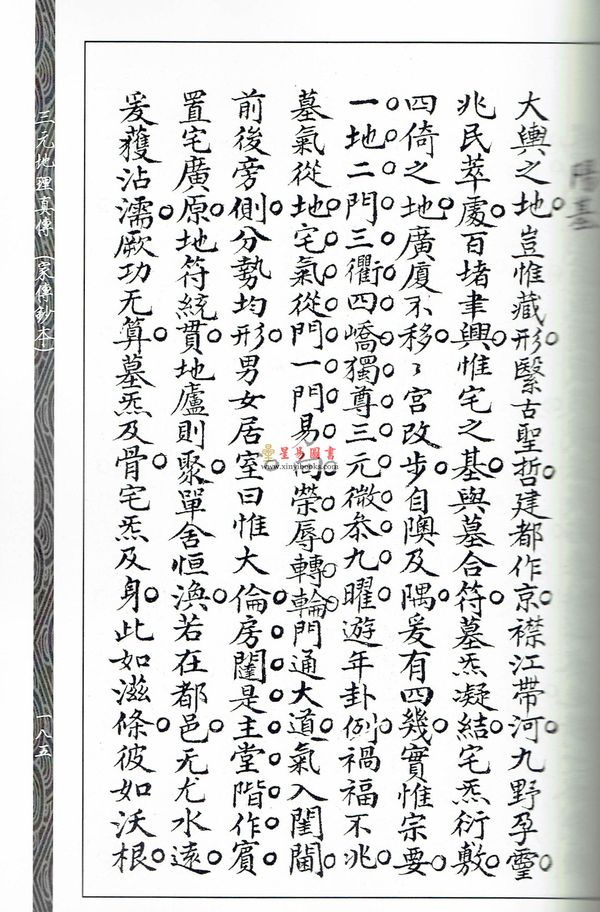 陽基
大輿之地○豈惟藏形○繄古聖哲○建都作京○襟江帶河○九野孕靈○
兆民萃處○百堵聿興○惟宅之基○與墓合符○墓炁凝結○宅炁衍敷○
四倚之地○廣廈不移○〻宮改步○自隩及隅○爰有四幾○實惟宗要○
一地二門○三衢四嶠○獨尊三元○微叅九曜○遊年卦例○禍福不兆○
墓氣從地○宅氣從門○一門易向○榮辱轉輪○門通大道○氣入閨閫○
前後旁側○分勢均形○男女居室○曰惟大倫○房闥是主○堂階作賓○
置宅廣原○地符統貫○地廬則聚○單舍恒渙○若在都邑○无尤水遠○
爰獲沾濡○厥功无算○墓炁及骨○宅炁及身○此如滋條○彼如沃根○
三元地理真傳（家傳鈔本）
一八五
星易圖書
www.xinyibooks.com